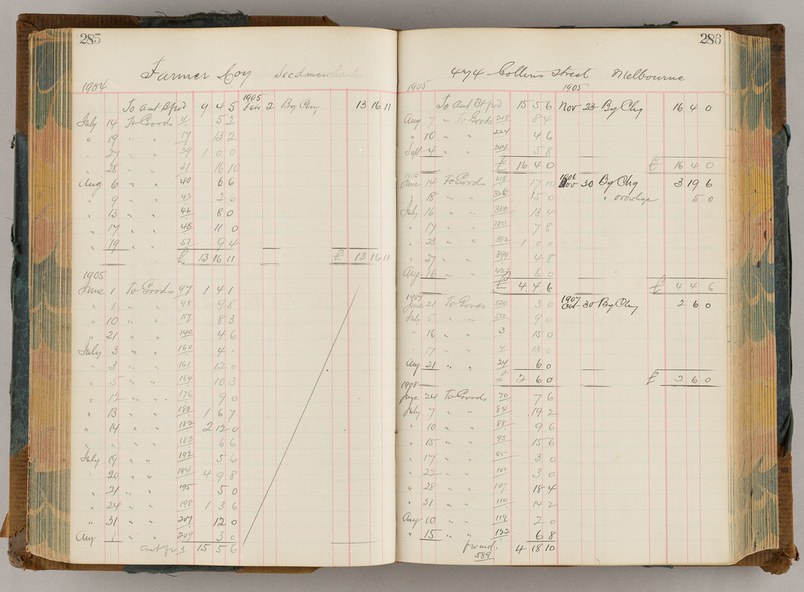 285
Farmer Coy
1904
To Amt Bt fwd 9 4 5 1905 2 By Chq 13 16 11
July 14 To Goods 5 2
" 19 " " 17 13 2
" 27 " " 1 0 0
" 28 " " 21 16 10
Aug 6 " " 40 6 6
" 9 " "
" 13 " " 46 8 0
" 17 " " 48 11 0
" 19 " " 9 4
£ 13 16 11 £ 13 16 11
1905
June 1 To Goods 97 1 4 1
" 1 " " 98 9 8
" 10 " " 8 3
" 21 " " 140 4 6
July 3 " " 160 4
" 3 " " 161 12 0
" 5 " " 164 10 3
" 12 " " 176 9 0
" 13 " " 182 1 6 7
" 14 " " 2 12 0
" " " 183 6 6
July 19 " " 192 5 6
" 20 " " 194 4 9 8
" 21 " " 195 5 0
" 24 " " 198 1 3 6
" 31 " " 207 12 0
Aug 1 " " 3 0
15 5 6
286
474 Collins Street Melbourne
1905 1905
To Amt Bt fwd 15 5 6 Nov 23 By Chq 16 4 0
Aug 7 " To Goods 8 4
" 10 " " 224 4 6
Sept 4 " " 5 8
£ 16 4 0 £ 16 4 0
1906
June 14 To Goods 17 10 Nov 30 By Chq 3 19 6
" 15 " " 15 0 " 5 0
July 16 " " 18 4
" 17 " " 7 8
" 23 " " 1 0 0
" 27 " " 4 8
Aug 16 " " 6 0
£ 4 4 6 £ 4 4 6
1907 1907
21 To Goods 3 0 Oct 30 By Chq 2 6 0
July 5 " " 9 0
" 16 " " 3 15 0
" 17 " " 13 0
Aug 21 " " 24 6 0
£ 2 6 0 £ 2 6 0
1908
June 24 To Goods 70 7 6
July 7 " " 84 19 2
" 10 " " 9 6
" 15 " " 15 6
" 17 " " 3 0
" 22 " " 101 3 0
" 28 " " 107 18 4
" 31 " " 110 14 2
Aug 10 " " 119 2 0
" 15 " " 132 6 8
fwd 4 18 10
589